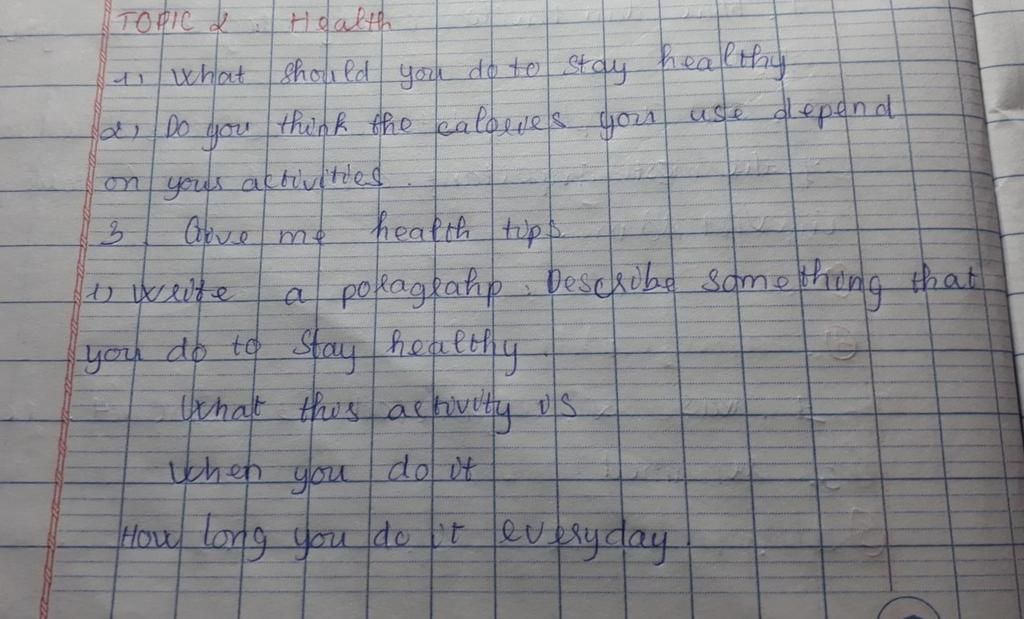 TOPIC 2. Health
1, What should you do to stay healthy
2, Do you think the calories you use depend
on your activities.
3 Give me health tips
1) write a poragrahp. Describe something that
you do to stay healthy.
What this activity is
When you do it
How long you do it everyday